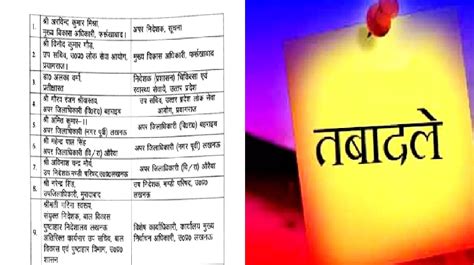 1. श्री अरविन्द कुमार मिश्रा,
मुख्य विकास अधिकारी, फर्रूखाबाद।
अपर निदेशक, सूचना
2. श्री विनोद कुमार गौड़,
उप सचिव, उ०प्र० लोक सेवा आयोग,
प्रयागराज।
मुख्य विकास अधिकारी, फर्रूखाबाद
3. डा० अलका वर्मा,
प्रतीक्षारत
निदेशक (प्रशासन) चिकित्सा एवं
स्वास्थ्य सेवायें, उत्तर प्रदेश
4. श्री गौरव रंजन श्रीवास्तव,
अपर जिलाधिकारी (वि०रा०) बहराइच
उप सचिव, उत्तर प्रदेश लोक सेवा
आयोग, प्रयागराज
5. श्री अमित कुमार-II
अपर जिलाधिकारी (नगर पूर्वी) लखनऊ
अपर जिलाधिकारी (वि०रा०) बहराइच
6. श्री महेन्द्र पाल सिंह
अपर जिलाधिकारी (वि/रा) औरैया
अपर जिलाधिकारी (नगर पूर्वी) लखनऊ
श्री अविनाश चन्द्र मौर्य,
उप निदेशक मण्डी परिषद, उ०प्र० लखनऊ
अपर जिलाधिकारी (वि/रा) औरैया
8. श्री नरेन्द्र सिंह,
उपजिलाधिकारी, मुरादाबाद
उप निदेशक, मण्डी परिषद, उ०प्र०
लखनऊ
9. श्रीमती गरिमा स्वरूप,
संयुक्त निदेशक, बाल विकास
पुष्टाहार निदेशालय लखनऊ
अतिरिक्त कार्यभार उप सचिव, बाल
विकास एवं पुष्टाहार विभाग, उ०प्र०
शासन
विशेष कार्याधिकारी, कार्यालय मुख्य
निर्वाचन अधिकारी, उ०प्र० लखनऊ
तबादले